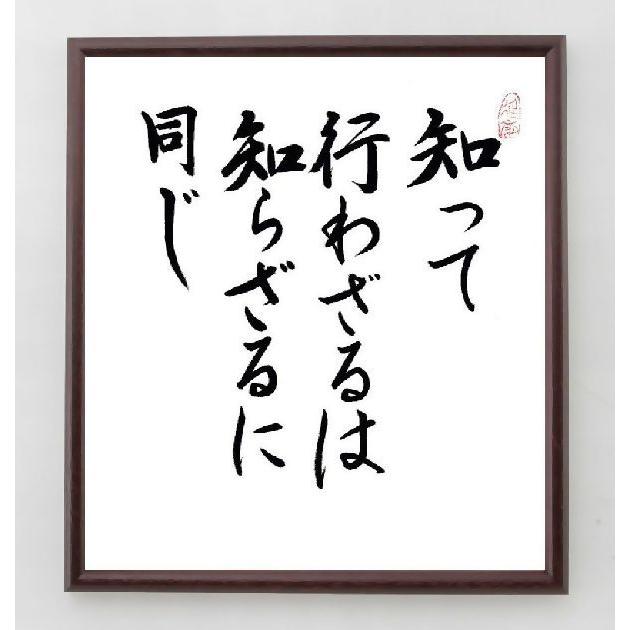 知って
行わざるは
知らざるに
同じ